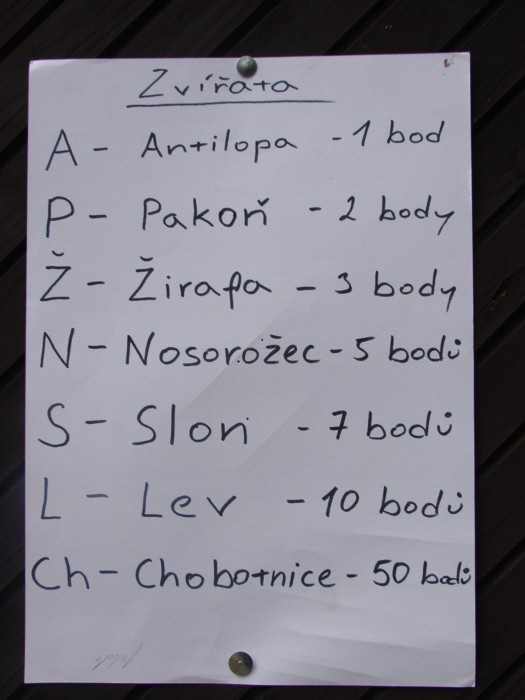 Zvířata
A - Antilopa - 1 bod
P - Pakoň - 2 body
Ž - Žirafa - 3 body
N - Nosorožec - 5 bodů
S - Slon - 7 bodů
L - Lev - 10 bodů
Ch - Chobotnice - 50 bodů